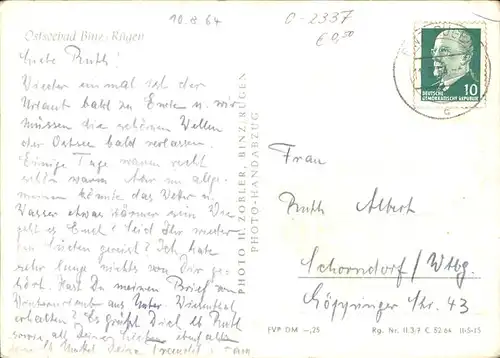 10.8.64
C-2337
€ 0,50
Ostseebad Binz - Rügen
Liebe Ruth!
Wieder einmal ist der
Urlaub bald zu Ende u. wir
müssen die schönen Wellen
der Ostsee bald verlassen.
Einige Tage waren recht
schön warm. Aber im allge-
meinen könnte das Wetter u.
Wasser etwas wärmer sein. Wie
geht es Euch? Seid Ihr wieder
im Süden gereist? Ich habe
sehr lange nichts von Dir ge-
hört. Hast Du meinen Brief vom
Winterurlaub aus
erhalten? Es grüßt Dich lb. Ruth
sowie als Deine
Deine
PHOTO H. ZOBLER, BINZ/RÜGEN
PHOTO-HANDABZUG
BINZ RÜGEN
DEUTSCHE
DEMOKRATISCHE REPUBLIK
10
c
Frau
Ruth Albert
Schorndorf/Wttbg.
Göppinger Str. 43
EVP DM —,25
Rg. Nr. II.3/7 C 52 64 II-5-15